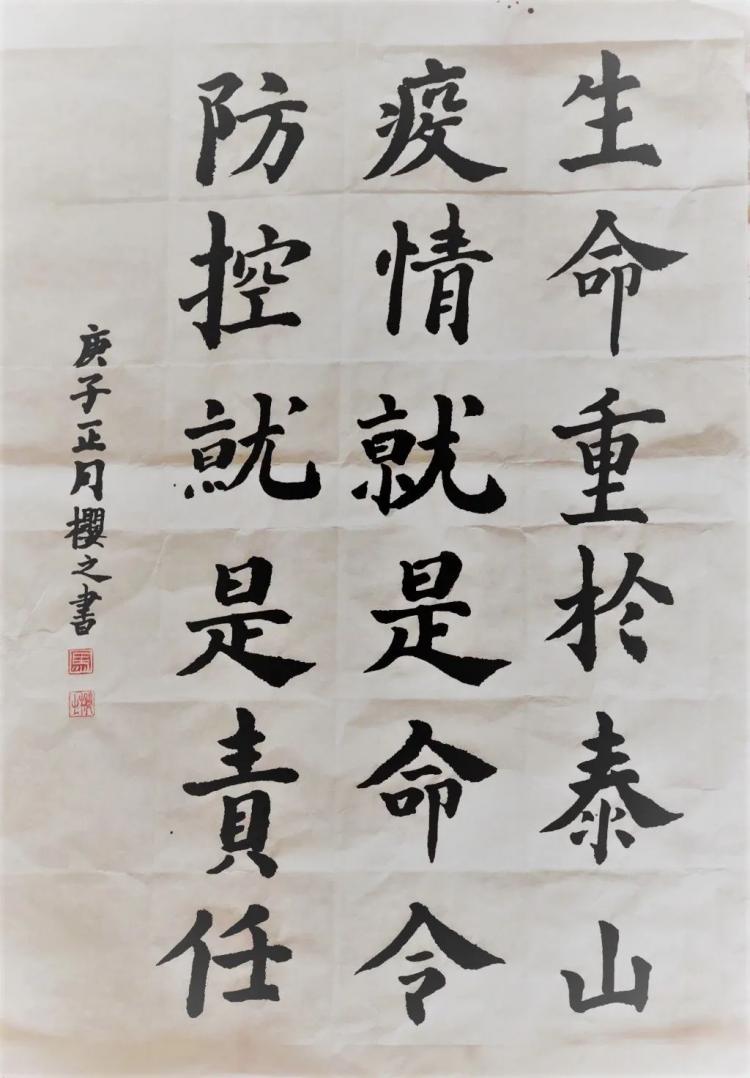 生命重於泰山
疫情就是命令
防控就是責任
庚子正月櫻之書